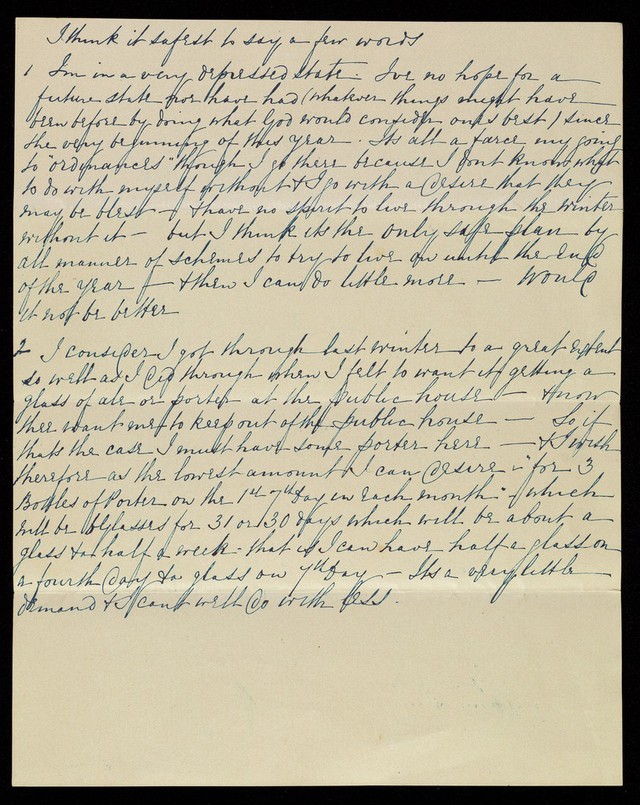 I think it safest to say a few words
1 I'm in a very depressed state. I've no hope for a
future state nor have had (whatever things might have
been before by doing what God would consider ones best) since
the very beginning of this year. Its all a farce my going
to "ordinances" though I go there because I dont know what
to do with myself without & I go with a desire that they
may be blest — & have no spirit to live through the winter
without it — but I think its the only safe plan by
all manner of schemes to try to live on until the end
of the year — & then I can do little more — Would
it not be better
2 I consider I got through last winter to a great extent
so well as I did through when I felt to want it getting a
glass of ale or porter at the public house — & now
thee want me to keep out of the public house — So if
thats the case I must have some porter here — & I wish
therefore as the lowest amount I can desire is for 3
Bottles of Porter on the 1st 7th day in each month — which
will be glasses for 31 or 30 days which will be about a
glass & a half a week — that is I can have half a glass on
a fourth day & a glass on 7th day — Its a very little
demand & I cant well do with less.